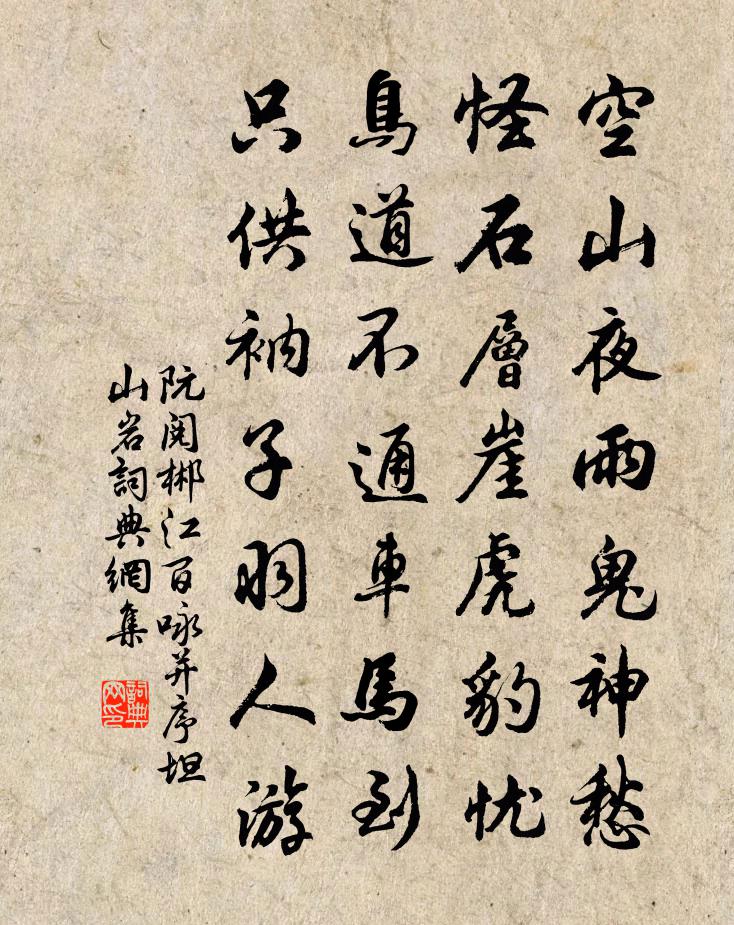 空山夜雨鬼神愁
怪石層崖虎豹忧
鳥道不通車馬到
只供衲子羽人游
阮閱郴江百咏并序坦
山岩詞典網集
詞典
网印